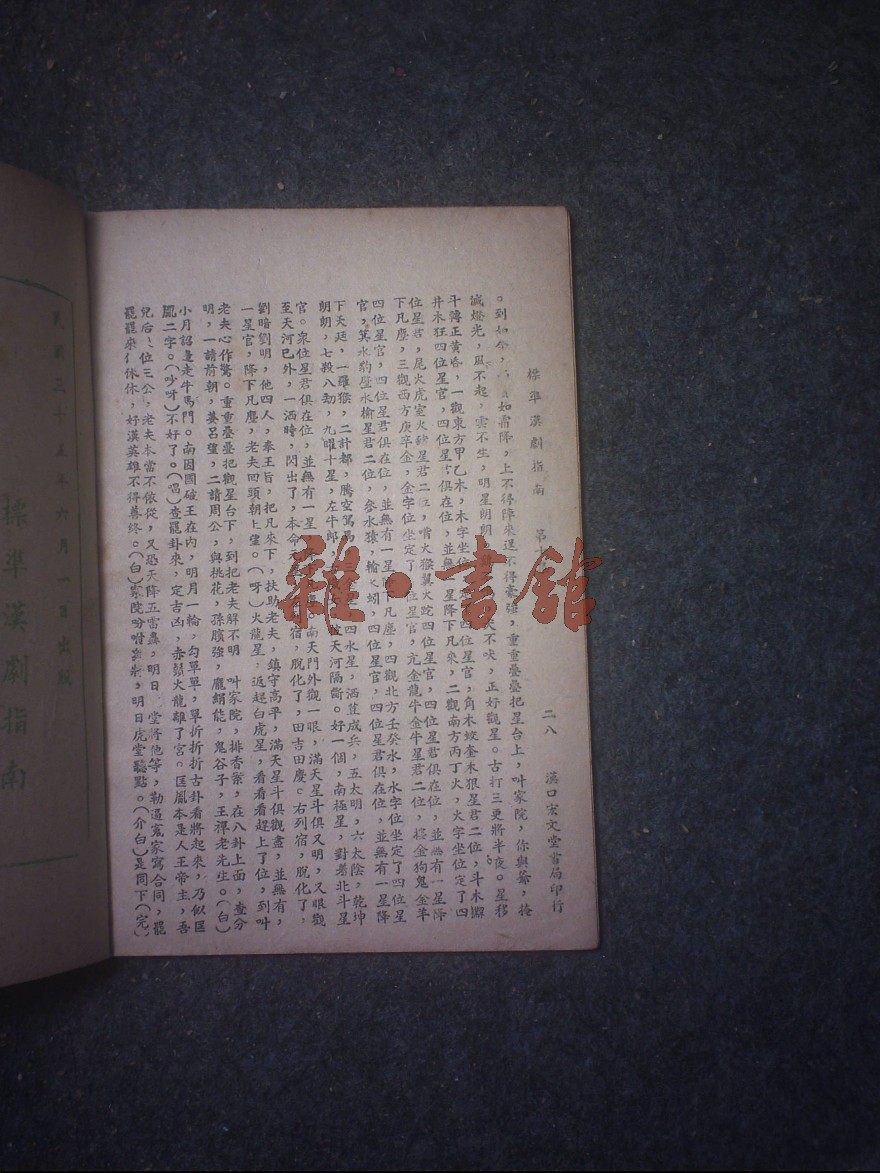 標準漢劇指南　第十
二八　漢口宏文堂書局印行
。到如今，如霜降，上不得陣來逞不得豪強，重重疊疊把星台上，叫家院，你與爺，掩
滅燈光，風不起，雲不生，明星朗朗，犬不吠，正好觀星。古打三更將半夜。星移
斗轉正黃昏，一觀東方甲乙木，木字坐位四位星官，角木蛟奎木狼星君二位，斗木獬
井木犴四位星官，四位星君俱在位，並無一星降下凡來，二觀南方丙丁火，火字坐位定了四
位星君，尾火虎室火豬星君二位，觜火猴翼火蛇四位星官，四位星君俱在位，並無有一星降
下凡塵，三觀西方庚辛金，金字位坐定了四位星官，亢金龍牛金牛星君二位，婁金狗鬼金羊
四位星官，四位星君俱在位，並無有一星降下凡塵，四觀北方壬癸水，水字位坐定了四位星
官，箕水豹壁水榆星君二位，參水猿，四位星官，四位星君俱在位，並無有一星降
下天廷，一羅猴，二計都，騰空駕馬，四水星，洒荳成兵，五太明，六太陰，乾坤
朗朗，七殺八劫，九曜十星，左牛郎，被天河隔斷。好一個，南極星，對着北斗星
官。眾位星君俱在位，並無有一星南天門外觀一眼，滿天星斗俱又明，又眼觀
至天河已外，一洒時，閃出了，本命元宿，脫化了，田吉田慶。右列宿，脫化了，
劉暗劉明，他四人，奉王旨，把凡來下，扶助老夫，鎮守高平，滿天星斗俱觀盡，並無有，
一星官，降下凡塵，老夫回頭朝上望。（呀）火龍星，返起白虎星，看看看趕上了位，到叫
老夫心作驚。重重疊疊把觀星台下，到把老夫解不明，叫家院，排香案，在八卦上面，查分
明，一請前朝，姜呂望，二請周公，與桃花，孫臏強，龐絹能，鬼谷子，王禪老先生。（白）
小月認邊走牛馬門。南國國破王在內，明月一輪，勾單單，單折折折古卦看將起來，乃似匡
胤二字。（吵呀）不好了。（唱）查罷卦來，定吉凶，赤鬚火龍離了宮。匡胤本是人王帝主，吾
兒后位三公，老夫本當不依從，又恐天降五雷轟，明日堂將他等，勒逼寃家寫合同，罷
罷罷來休休，好漢英雄不得善終。（白）家院吩咐，明日虎堂聽點。（介白）是問下（完）
雜·書館
民國三十五年六月一日出版
標準漢劇指南